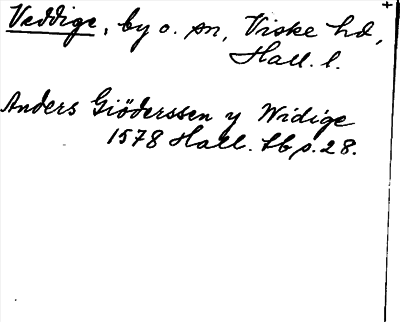 Veddige, by o. sn, Viske hd,
Hall. l.
Anders Giöderssen y Widige
1578 Hall. tb p. 28.